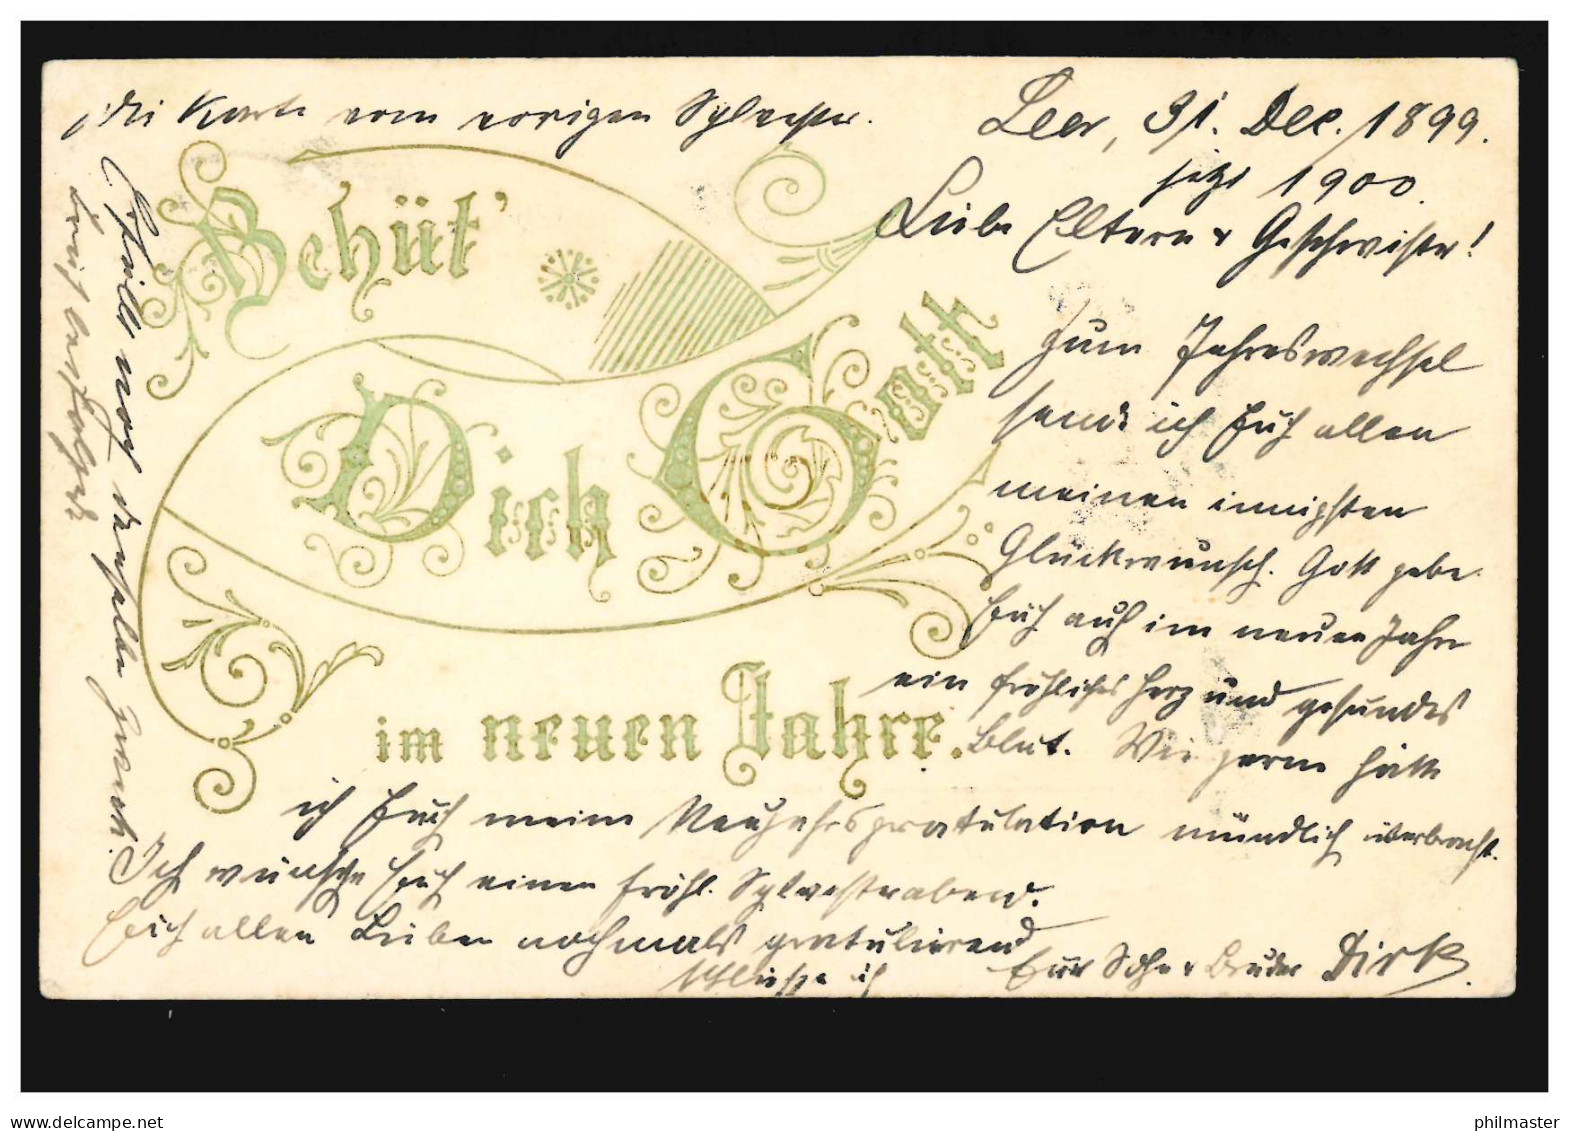 die Karte vom vorigen Sylvester.
Leer, 31. Dec. 1899.
jetzt 1900.
Liebe Eltern & Geschwister!
Behüt'
Dich Gott
im neuen Jahre.
Zum Jahreswechsel
sende ich Euch allen
meinen innigsten
Glückwunsch. Gott gebe
Euch auch im neuen Jahre
ein fröhliches Herz und gesundes
Blut. Wie gerne hätte
ich Euch meine Neujahrsgratulation mündlich überbracht.
Ich wünsche Euch einen fröhl. Sylvesterabend.
Euch allen Lieben nochmals gratulierend
schließe ich
Euer Sohn & Bruder Dirk.
noch denselben
Brief
delcampe.net
philmaster